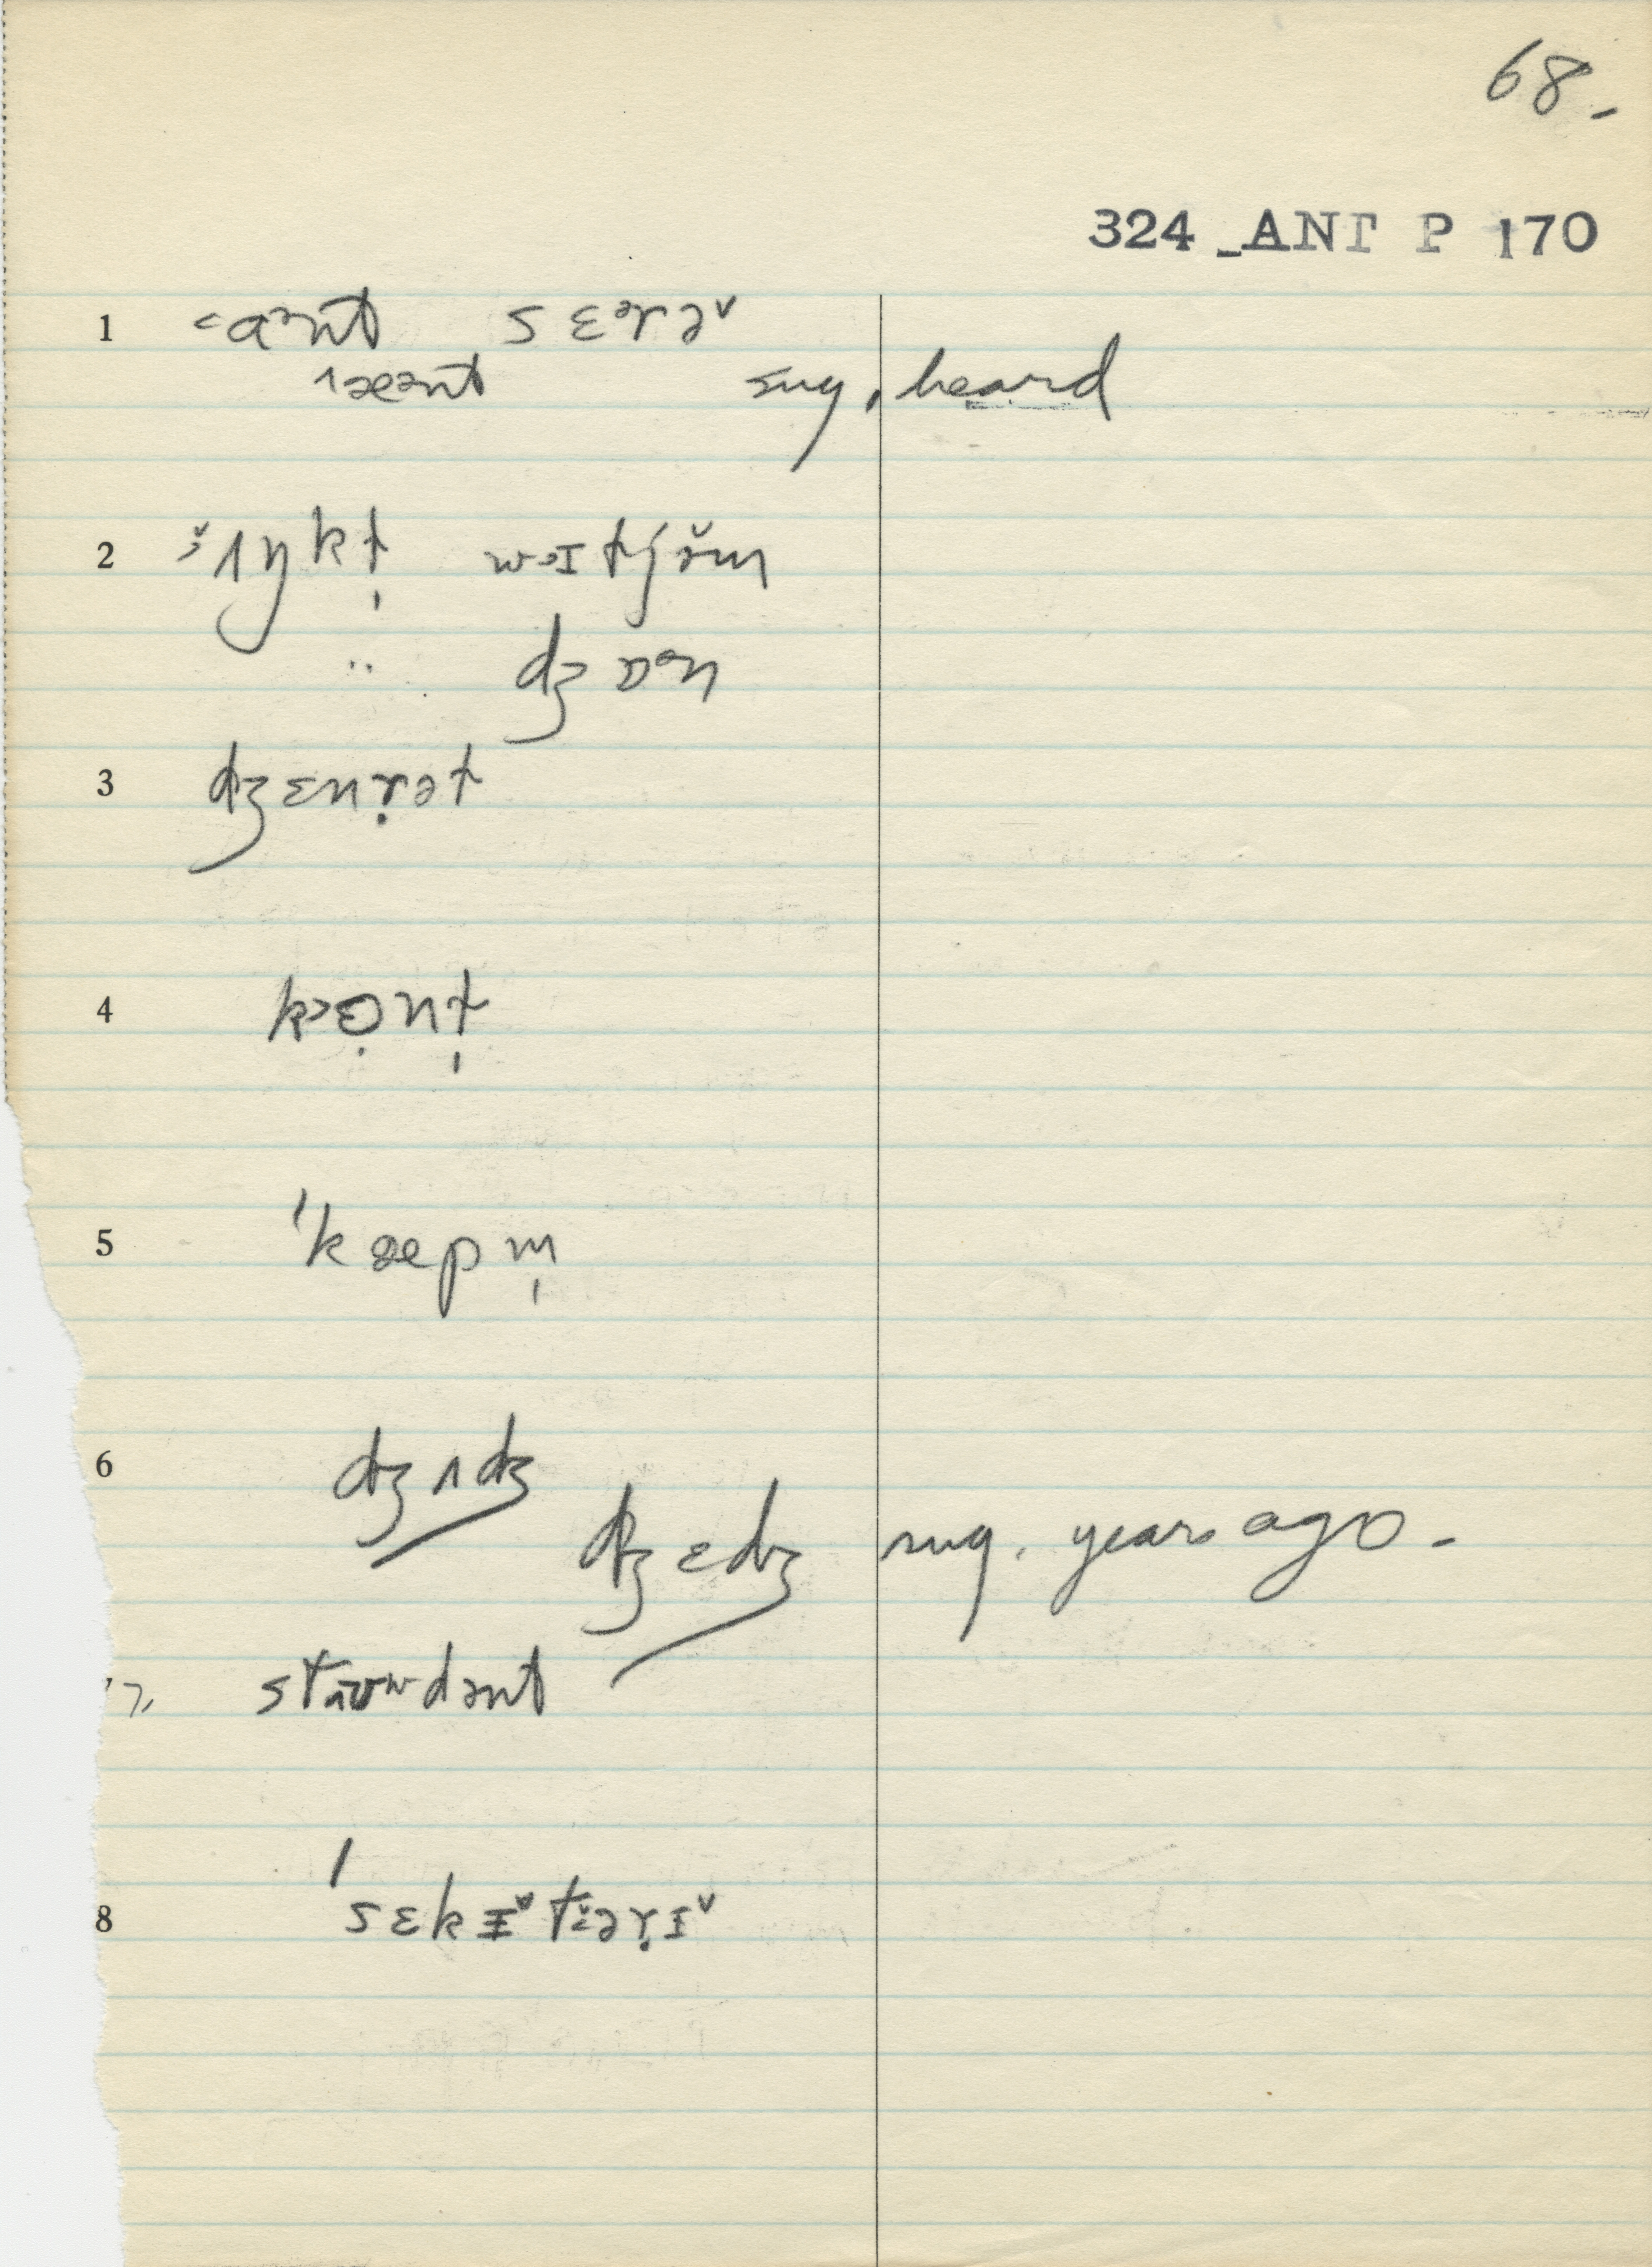 68.
324 ANT P 170
1 <aᵊnt sɛᵊrə˅
ˈæənt sug. heard
2 ʌŋkt̩ wɔɪtjə̆m
.. dʒɒᵊn
3 dʒɛnr̩ət
4 kɔənt̩
5 ˈkæpm̩
6 dʒʌdʒ
dʒɛdʒ sug. years ago.
7. stɪʊʷdənt
8 ˈsɛkɪ˅tɛər̩ɪ˅